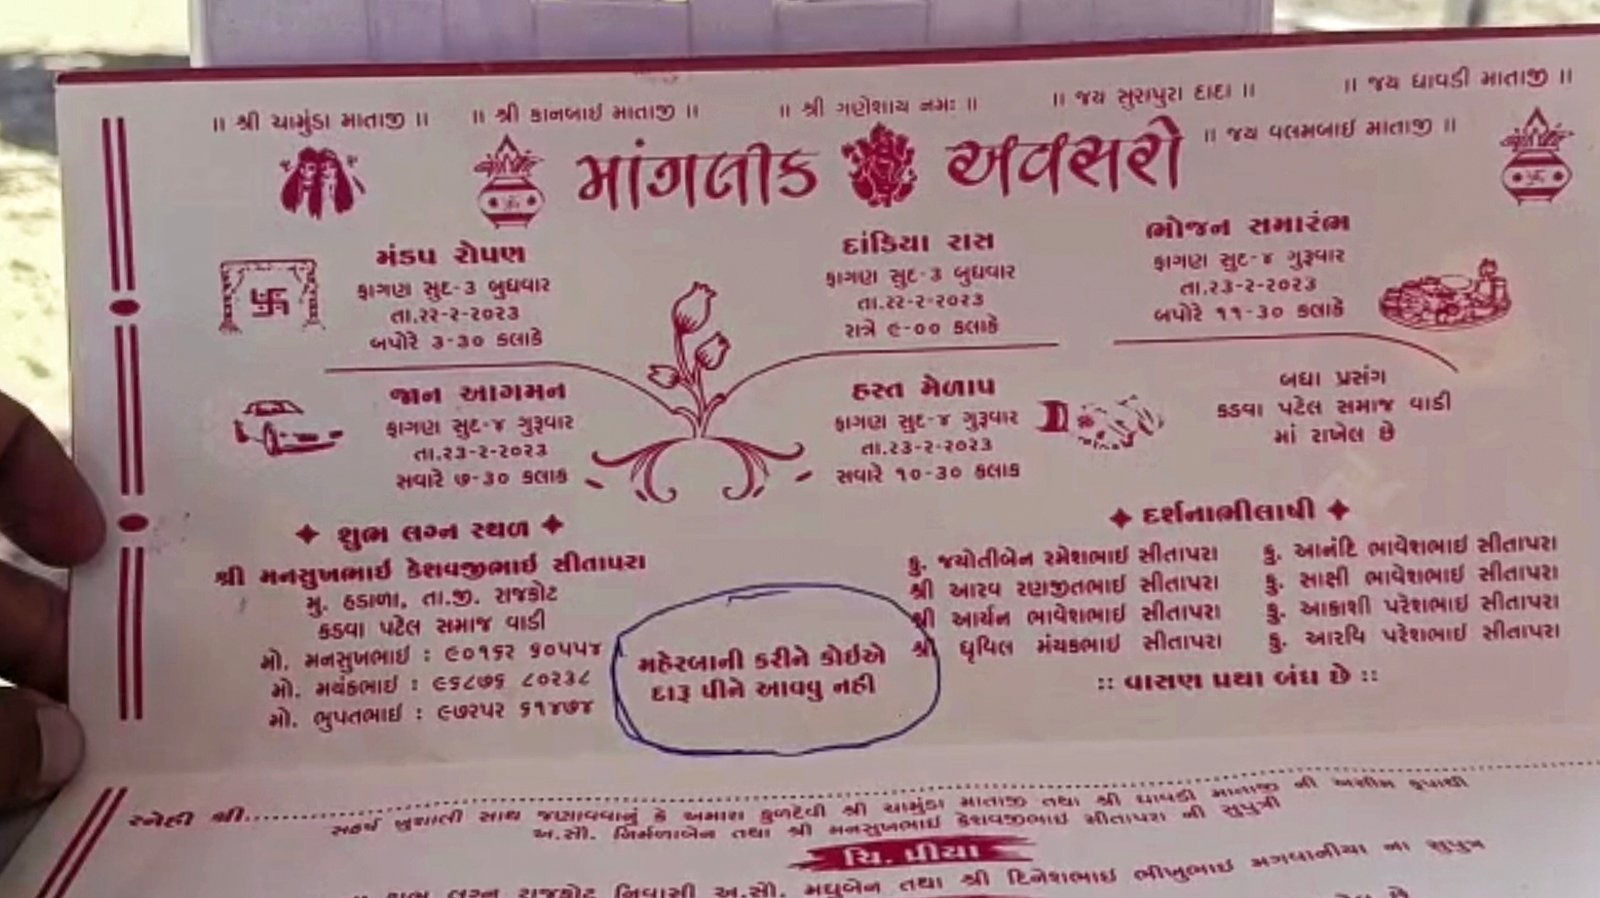 ॥ શ્રી ચામુંડા માતાજી ॥ ॥ શ્રી કાનબાઈ માતાજી ॥ ॥ શ્રી ગણેશાય નમઃ ॥ ॥ જય સુરાપુરા દાદા ॥ ॥ જય ધાવડી માતાજી ॥
॥ જય વલમબાઈ માતાજી ॥
માંગલીક અવસરો
મંડપ રોપણ
ફાગણ સુદ-૩ બુધવાર
તા.૨૨-૨-૨૦૨૩
બપોરે ૩-૩૦ કલાકે
દાંડિયા રાસ
ફાગણ સુદ-૩ બુધવાર
તા.૨૨-૨-૨૦૨૩
રાત્રે ૯-૦૦ કલાકે
ભોજન સમારંભ
ફાગણ સુદ-૪ ગુરૂવાર
તા.૨૩-૨-૨૦૨૩
બપોરે ૧૧-૩૦ કલાકે
જાન આગમન
ફાગણ સુદ-૪ ગુરૂવાર
તા.૨૩-૨-૨૦૨૩
સવારે ૭-૩૦ કલાક
હસ્ત મેળાપ
ફાગણ સુદ-૪ ગુરૂવાર
તા.૨૩-૨-૨૦૨૩
સવારે ૧૦-૩૦ કલાક
બધા પ્રસંગ
કડવા પટેલ સમાજ વાડી
માં રાખેલ છે
શુભ લગ્ન સ્થળ
શ્રી મનસુખભાઈ કેશવજીભાઈ સીતાપરા
મુ. હડાળા, તા.જી. રાજકોટ
કડવા પટેલ સમાજ વાડી
મો. મનસુખભાઈ : ૯૦૧૬૨ ૬૦૫૫૪
મો. મયંકભાઈ : ૯૬૮૭૬ ૮૦૨૩૮
મો. ભુપતભાઈ : ૯૭૨૫૨ ૬૧૪૭૪
મહેરબાની કરીને કોઈએ
દારૂ પીને આવવુ નહી
દર્શનાભીલાષી
કુ. જયોતીબેન રમેશભાઈ સીતાપરા
શ્રી આરવ રણજીતભાઈ સીતાપરા
શ્રી આર્યન ભાવેશભાઈ સીતાપરા
શ્રી ધૃવિલ મયંકભાઈ સીતાપરા
કુ. આનંદિ ભાવેશભાઈ સીતાપરા
કુ. સાક્ષી ભાવેશભાઈ સીતાપરા
કુ. આકાશી પરેશભાઈ સીતાપરા
કુ. આરવિ પરેશભાઈ સીતાપરા
:: વાસણ પ્રથા બંધ છે ::
સ્નેહી શ્રી..........
સહર્ષ ખુશાલી સાથ જણાવવાનું કે અમારા કુળદેવી શ્રી ચામુંડા માતાજી તથા શ્રી ધાવડી માતાજી ની અસીમ કૃપાથી
અ.સૌ. નિર્મળાબેન તથા શ્રી મનસુખભાઈ કેશવજીભાઈ સીતાપરા ની સુપુત્રી
ચિ. પ્રીયા
શુભ લગ્ન રાજકોટ નિવાસી અ.સૌ. મધુબેન તથા શ્રી દિનેશભાઈ ભીખુભાઈ મગવાનીયા ના સુપુત્ર